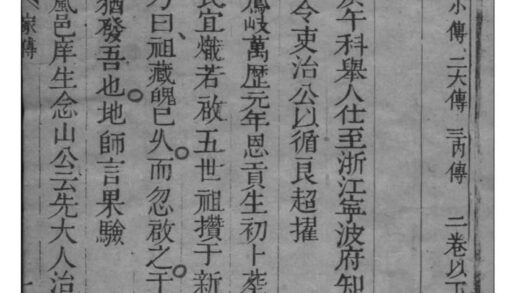 小傳 二大傳 三丙傳 二卷以下
午科舉人仕至浙江寧波府知
令吏治公以循良超擢
鳳岐萬歷元年恩貢生初卜葬
民宜熾若啟五世祖攢于新
曰祖藏魄已久而忽啟之于
猶發吾也地師言果驗
邑庠生念山公云先大人治
家傳